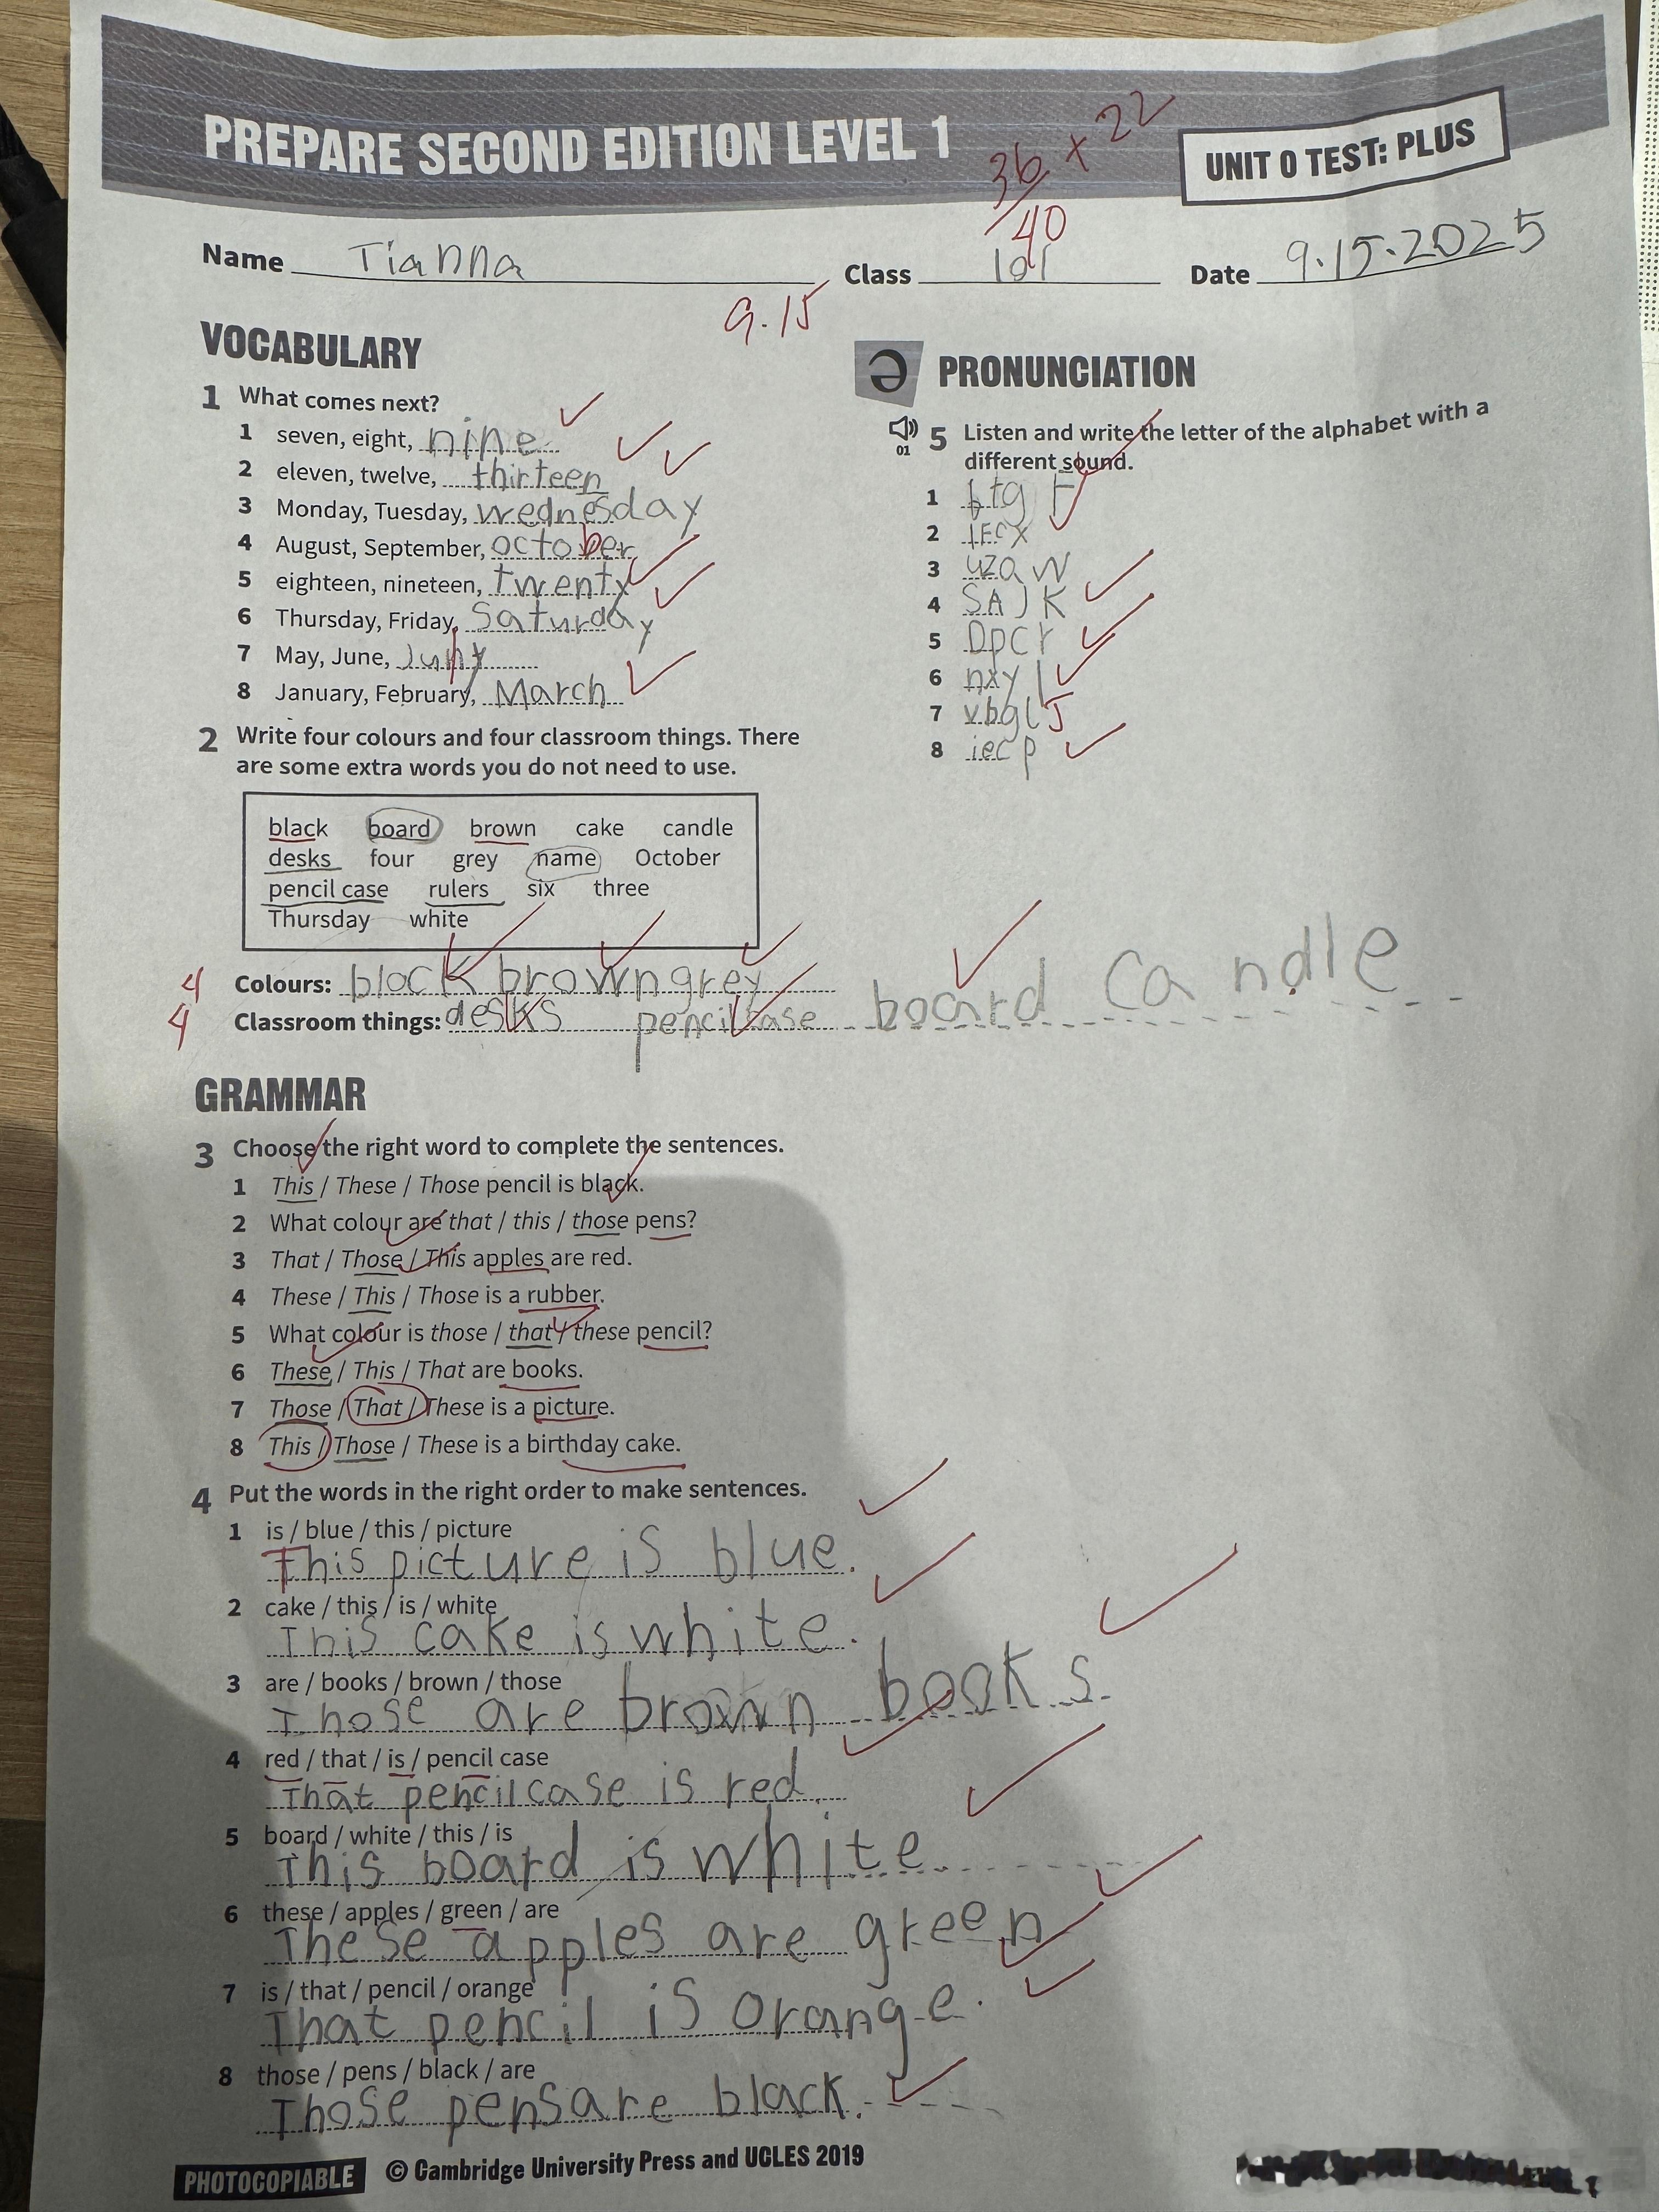 PREPARE SECOND EDITION LEVEL 1
36/40 + 22
UNIT 0 TEST: PLUS
Name Tianna
Class 101
Date 9.15.2025
9.15
VOCABULARY
1 What comes next?
1 seven, eight, nine
2 eleven, twelve, thirteen
3 Monday, Tuesday, wednesday
4 August, September, october
5 eighteen, nineteen, twenty
6 Thursday, Friday, Saturday
7 May, June,
8 January, February, March
2 Write four colours and four classroom things. There
are some extra words you do not need to use.
black board brown cake candle
desks four grey name October
pencil case rulers six three
Thursday white
4 Colours: black brown grey
4 Classroom things: desks pencil case board candle
GRAMMAR
3 Choose the right word to complete the sentences.
1 This / These / Those pencil is black.
2 What colour are that / this / those pens?
3 That / Those / This apples are red.
4 These / This / Those is a rubber.
5 What colour is those / that / these pencil?
6 These / This / That are books.
7 Those / That / These is a picture.
8 This / Those / These is a birthday cake.
4 Put the words in the right order to make sentences.
1 is / blue / this / picture
This picture is blue.
2 cake / this / is / white
This cake is white.
3 are / books / brown / those
Those are brown books
4 red / that / is / pencil case
That pencil case is red.
5 board / white / this / is
This board is white.
6 these / apples / green / are
These apples are green
7 is / that / pencil / orange
That pencil is orange.
8 those / pens / black / are
Those pens are black.
ə PRONUNCIATION
01 5 Listen and write the letter of the alphabet with a
different sound.
1 F
2
3 uza w
4 SAJ K
5 Dpc r
6 nxy l
7 vbgl J
8 iec p
PHOTOCOPIABLE © Cambridge University Press and UCLES 2019